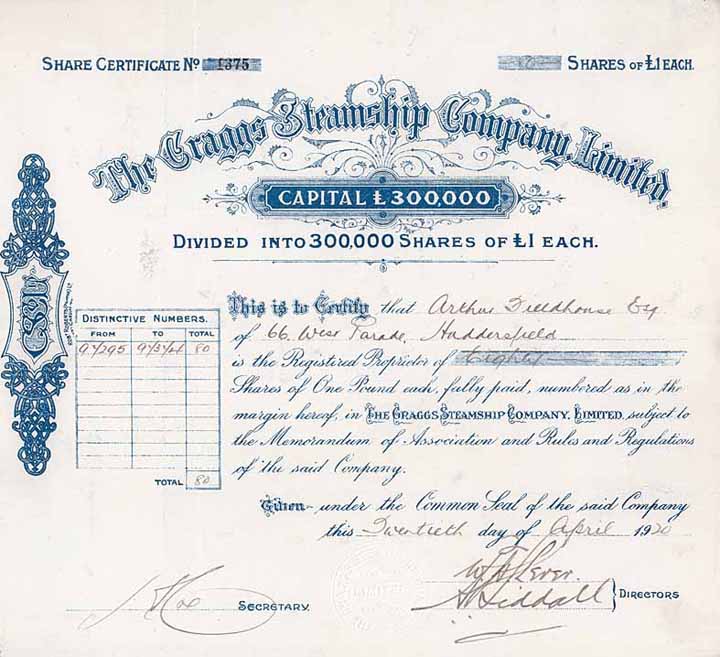 SHARE CERTIFICATE No 1375
SHARES OF £1 EACH.
The Craggs Steamship Company, Limited.
CAPITAL £300,000
DIVIDED INTO 300,000 SHARES OF £1 EACH.
DISTINCTIVE NUMBERS.
FROM TO TOTAL
80
TOTAL 80
This is to Certify that Arthur Fieldhouse Esq
of 66 West Parade, Huddersfield
is the Registered Proprietor of Eighty
Shares of One Pound each, fully paid, numbered as in the
margin hereof, in THE CRAGGS STEAMSHIP COMPANY, LIMITED, subject to
the Memorandum of Association and Rules and Regulations
of the said Company.
Given under the Common Seal of the said Company
this Twentieth day of April 1920
SECRETARY.
DIRECTORS